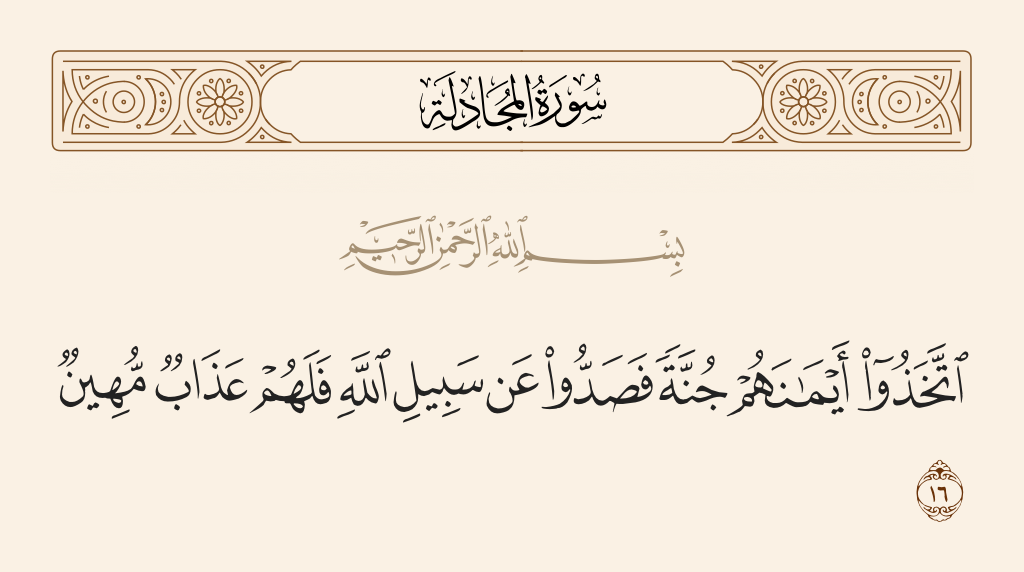 سُورَةُ المُجَادلَةِ
بِسْمِ ٱللَّهِ ٱلرَّحْمَٰنِ ٱلرَّحِيمِ
ٱتَّخَذُوٓا۟ أَيْمَـٰنَهُمْ جُنَّةً فَصَدُّوا۟ عَن سَبِيلِ ٱللَّهِ فَلَهُمْ عَذَابٌ مُّهِينٌ
١٦